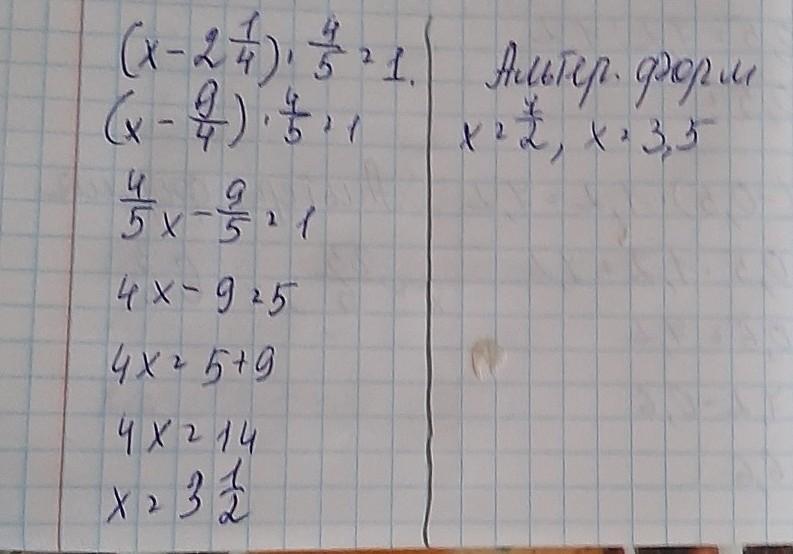 (x - 2 1/4) · 4/5 = 1.
(x - 9/4) · 4/5 = 1
4/5 x - 9/5 = 1
4x - 9 = 5
4x = 5 + 9
4x = 14
x = 3 1/2
Альтер. форм
x = 7/2, x = 3,5